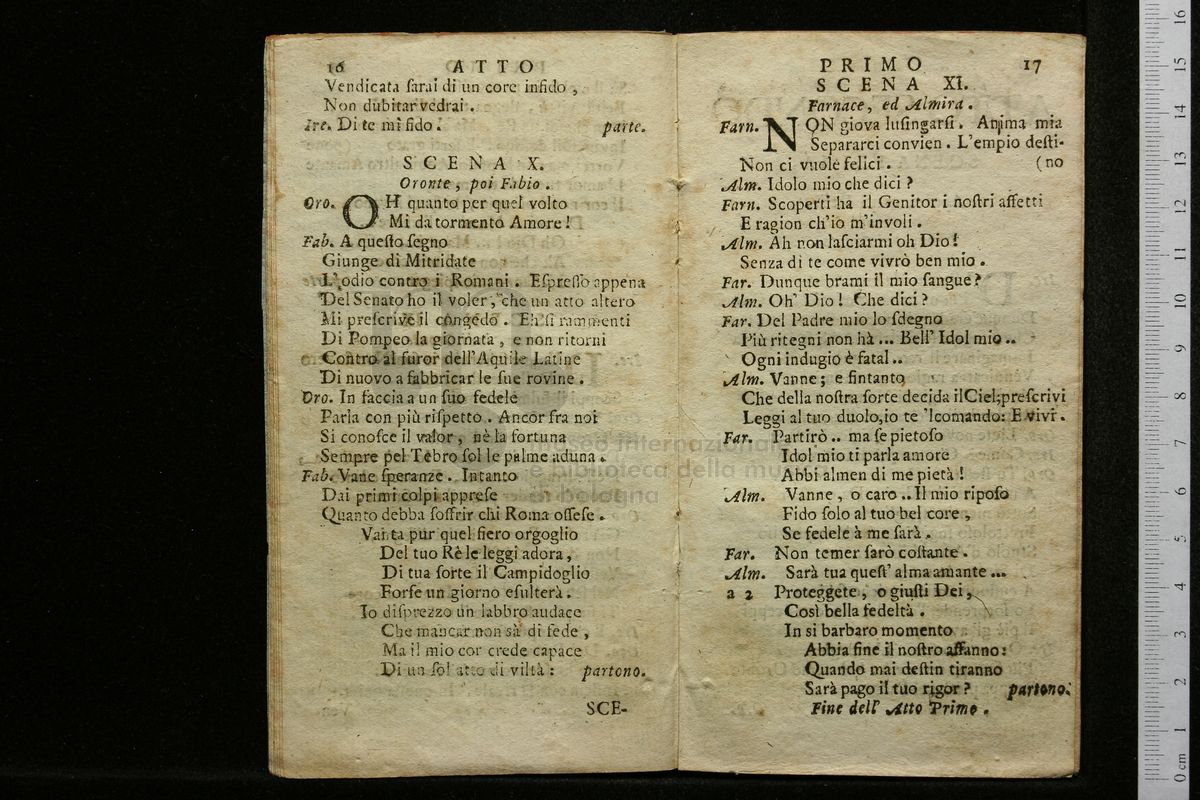 16 ATTO
Vendicata sarai di un core infido ,
Non dubitar vedrai .
Ire. Di te mi fido . parte.
SCENA X.
Oronte , poi Fabio .
Oro. OH quanto per quel volto
Mi da tormento Amore !
Fab. A queſto ſegno
Giunge di Mitridate
L'odio contro i Romani . Eſpreſſo appena
Del Senato ho il voler, che un atto altero
Mi preſcrive il congedo . Eh ſi rammenti
Di Pompeo la giornata , e non ritorni
Contro al furor dell'Aquile Latine
Di nuovo a fabbricar le ſue rovine .
Oro. In faccia a un ſuo fedele
Parla con più riſpetto . Ancor fra noi
Si conoſce il valor , nè la fortuna
Sempre pel Tebro ſol le palme aduna .
Fab. Vane ſperanze . Intanto
Dai primi colpi appreſe
Quanto debba ſoffrir chi Roma offeſe .
Vanta pur quel fiero orgoglio
Del tuo Rè le leggi adora ,
Di tua ſorte il Campidoglio
Forſe un giorno eſulterà .
Io diſprezzo un labbro audace
Che mancar non sà di fede ,
Ma il mio cor crede capace
Di un ſol atto di viltà : partono.
SCE-
PRIMO 17
SCENA XI.
Farnace , ed Almira .
Farn. NON giova luſingarſi . Anima mia
Separarci convien . L'empio deſti-
Non ci vuole felici . (no
Alm. Idolo mio che dici ?
Farn. Scoperti ha il Genitor i noſtri affetti
E ragion ch'io m'involi .
Alm. Ah non laſciarmi oh Dio !
Senza di te come vivrò ben mio .
Far. Dunque brami il mio ſangue ?
Alm. Oh' Dio ! Che dici ?
Far. Del Padre mio lo ſdegno
Più ritegni non hà ... Bell' Idol mio ..
Ogni indugio è fatal ..
Alm. Vanne ; e fintanto
Che della noſtra ſorte decida il Ciel; preſcrivi
Leggi al tuo duolo, io te 'l comando: E vivi .
Far. Partirò .. ma ſe pietoſo
Idol mio ti parla amore
Abbi almen di me pietà !
Alm. Vanne , o caro .. Il mio ripoſo
Fido ſolo al tuo bel core ,
Se fedele à me ſarà .
Far. Non temer ſarò coſtante .
Alm. Sarà tua queſt' alma amante ...
a 2 Proteggete , o giuſti Dei ,
Così bella fedeltà .
In si barbaro momento
Abbia fine il noſtro affanno :
Quando mai deſtin tiranno
Sarà pago il tuo rigor ? partono.
Fine dell' Atto Primo .
museo internazionale
e biblioteca della musica
di bologna
0 cm 1 2 3 4 5 6 7 8 9 10 11 12 13 14 15 16